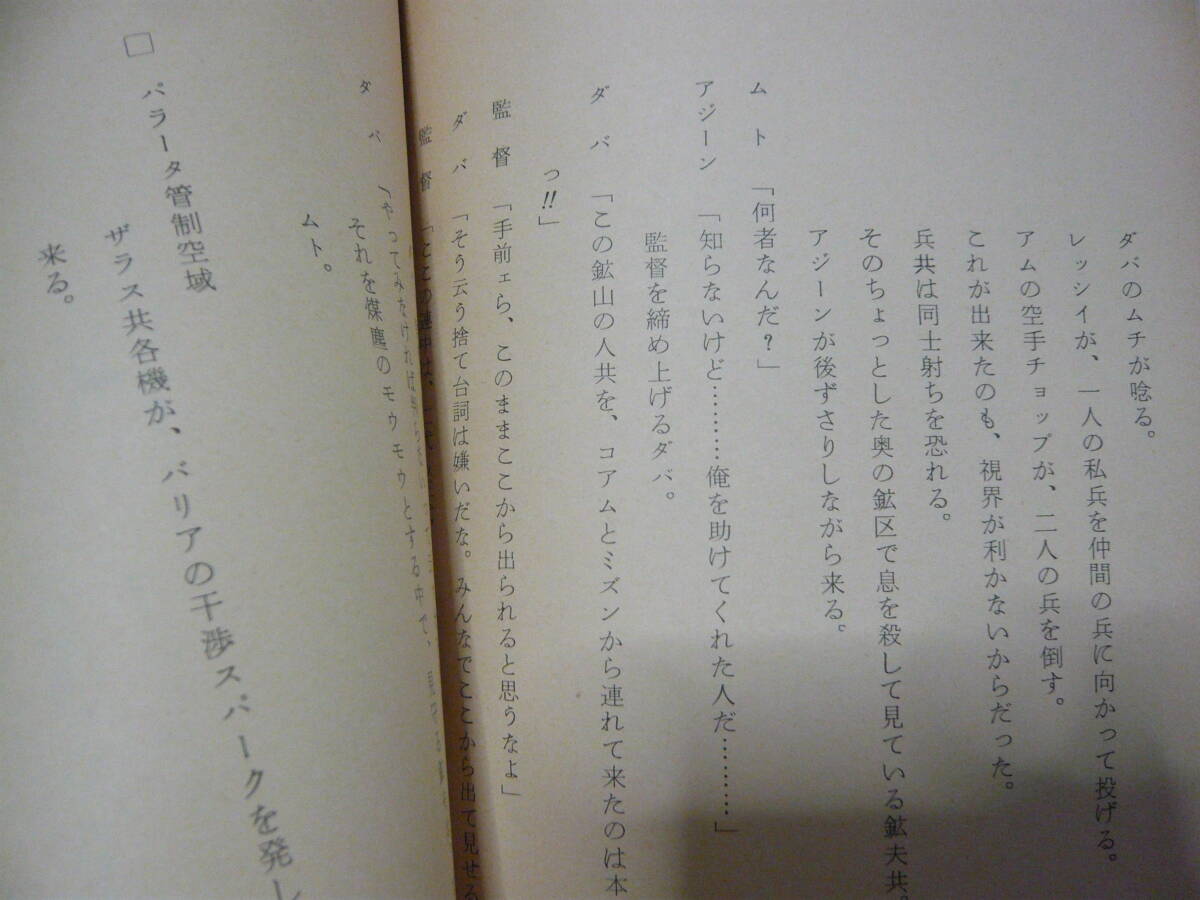 ダバのムチが唸る。
レッシイが、一人の私兵を仲間の兵に向かって投げる。
アムの空手チョップが、二人の兵を倒す。
これが出来たのも、視界が利かないからだった。
兵共は同士射ちを恐れる。
そのちょっとした奥の鉱区で息を殺して見ている鉱夫共。
アジーンが後ずさりしながら来る。
ムト「何者なんだ？」
アジーン「知らないけど………俺を助けてくれた人だ………」
監督を締め上げるダバ。
ダバ「この鉱山の人共を、コアムとミズンから連れて来たのは本
っ!!」
監督「手前ェら、このままここから出られると思うなよ」
ダバ「そう云う捨て台詞は嫌いだな。みんなでここから出て見せる
監督「ここの連中は、
ダバ「やってみなければ
それを煤塵のモウモウとする中で、
ムト。
□ バラータ管制空域
ザラス共各機が、バリアの干渉スパークを発し
来る。